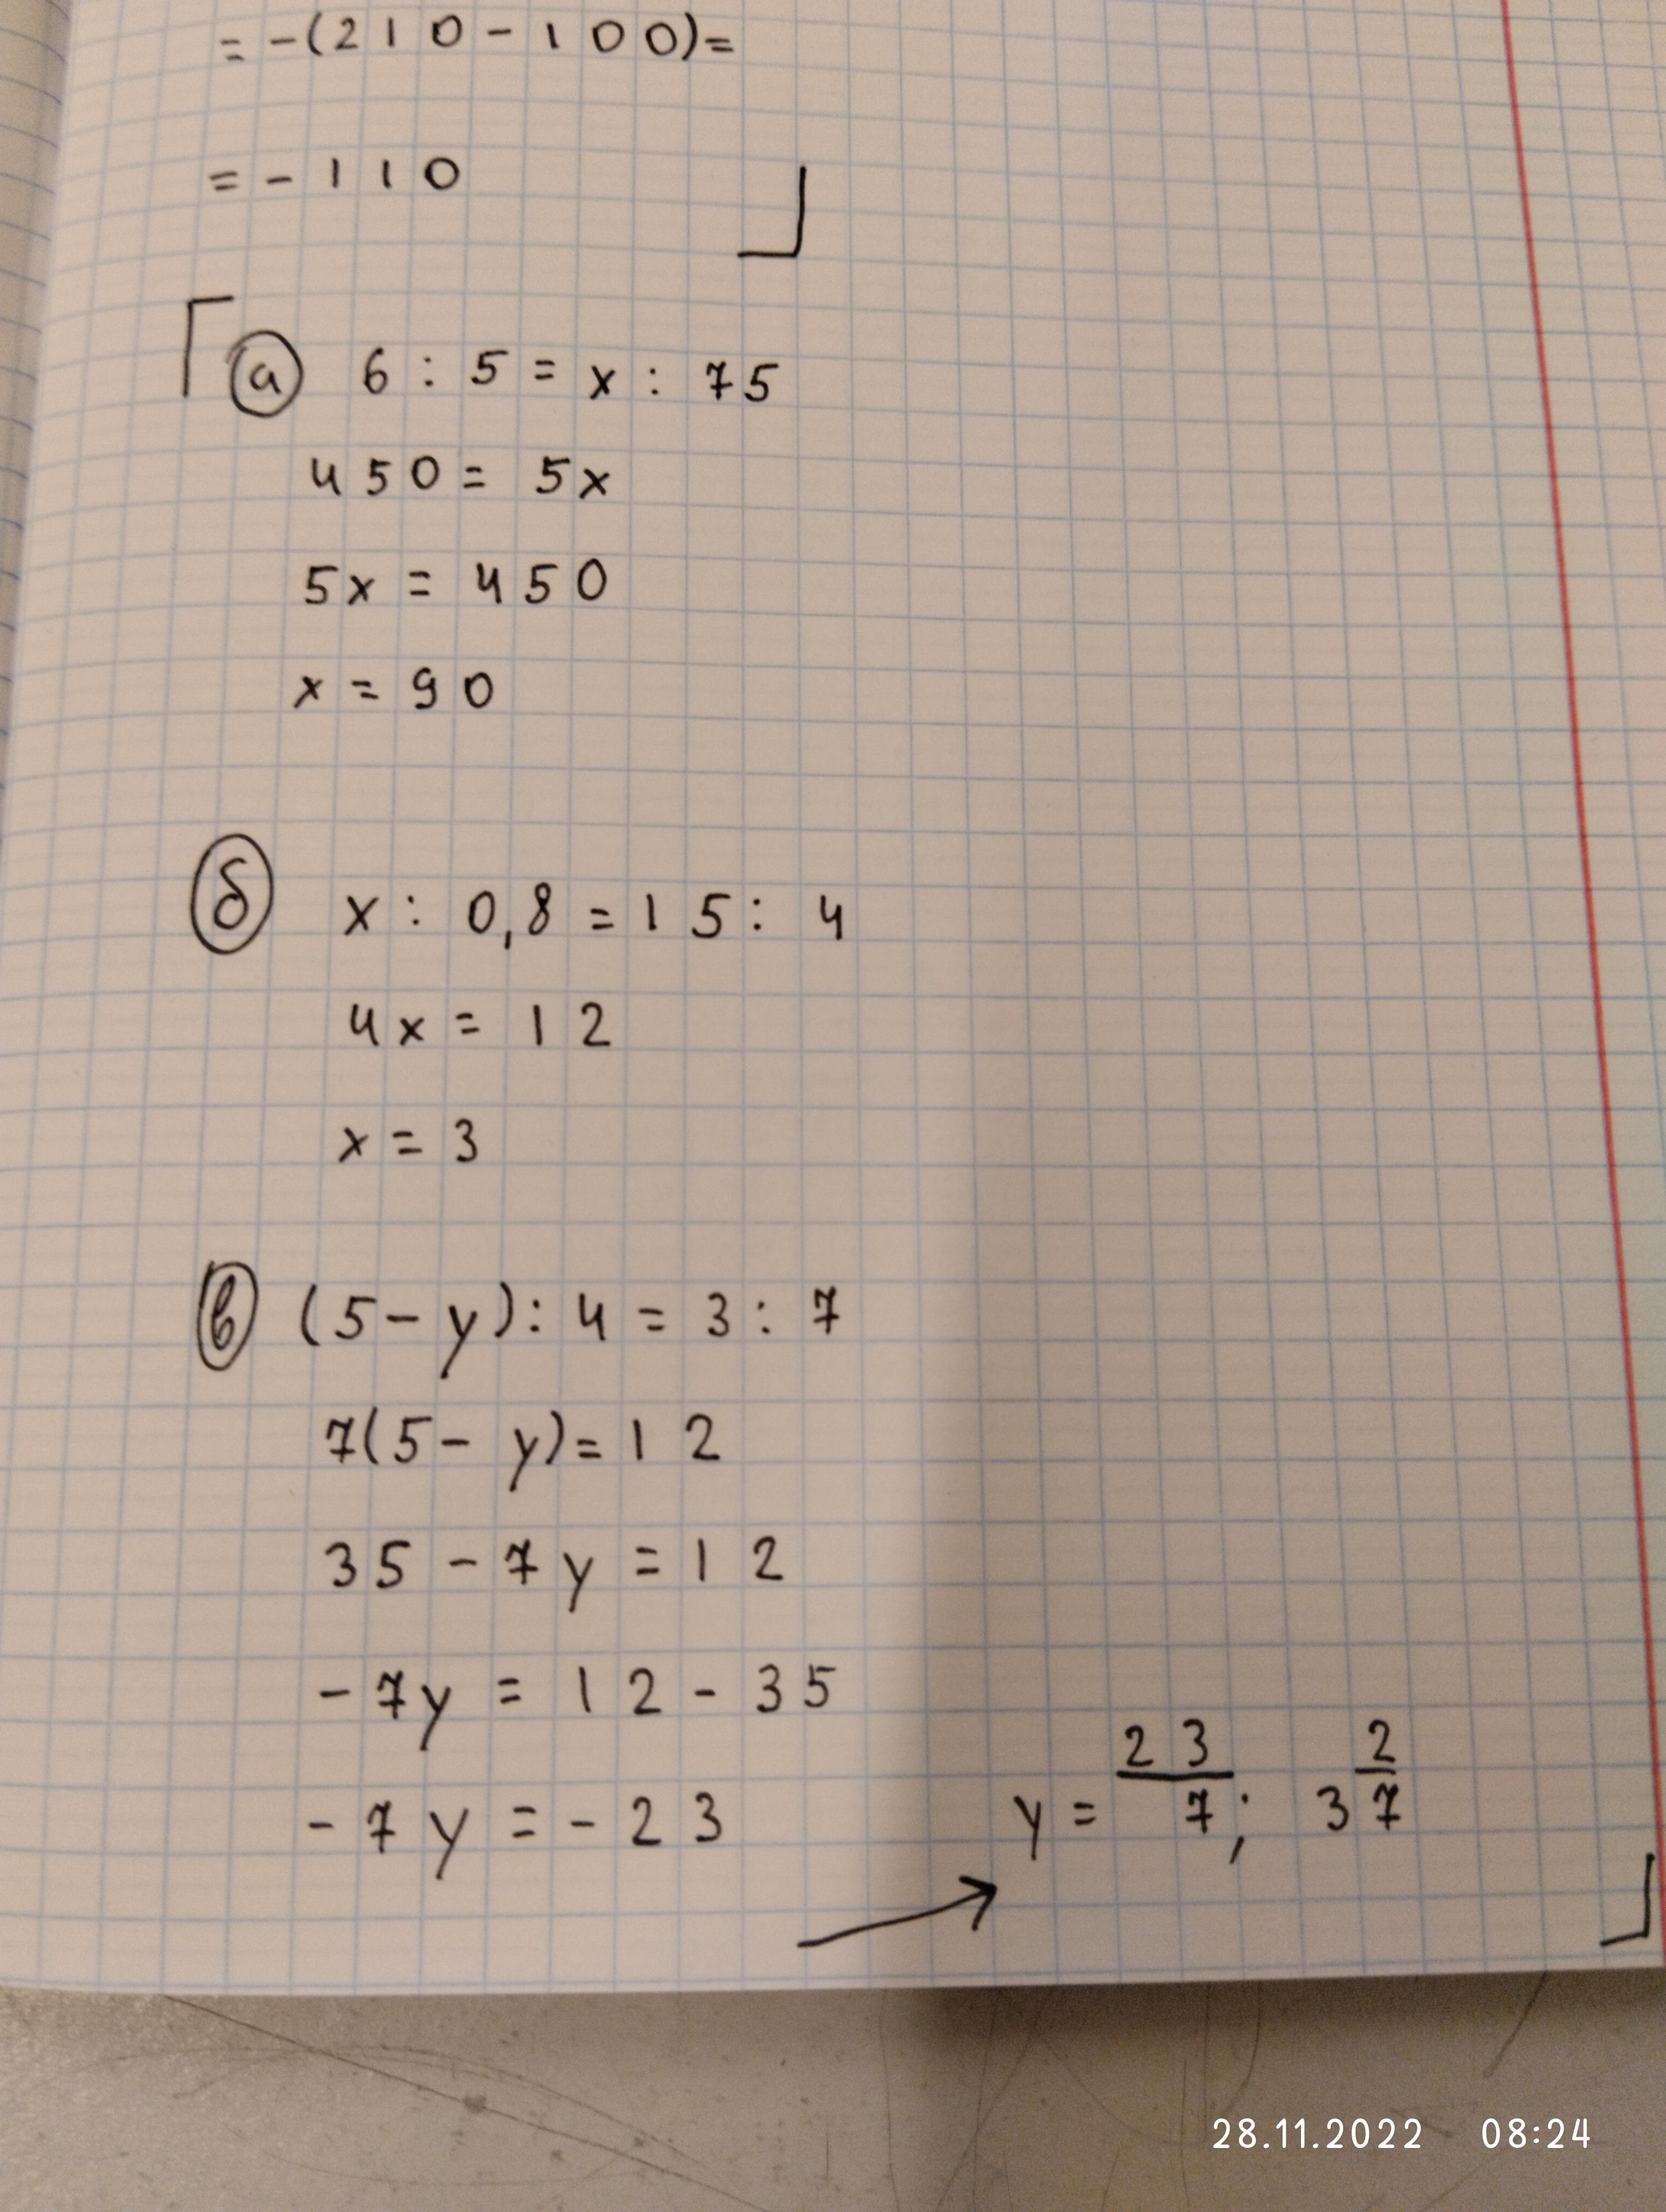 = -(210 - 100) =
= -110
а 6 : 5 = x : 75
450 = 5x
5x = 450
x = 90
б x : 0,8 = 15 : 4
4x = 12
x = 3
в (5 - y) : 4 = 3 : 7
7(5 - y) = 12
35 - 7y = 12
-7y = 12 - 35
-7y = -23
→ y = 23/7; 3 2/7
28.11.2022 08:24